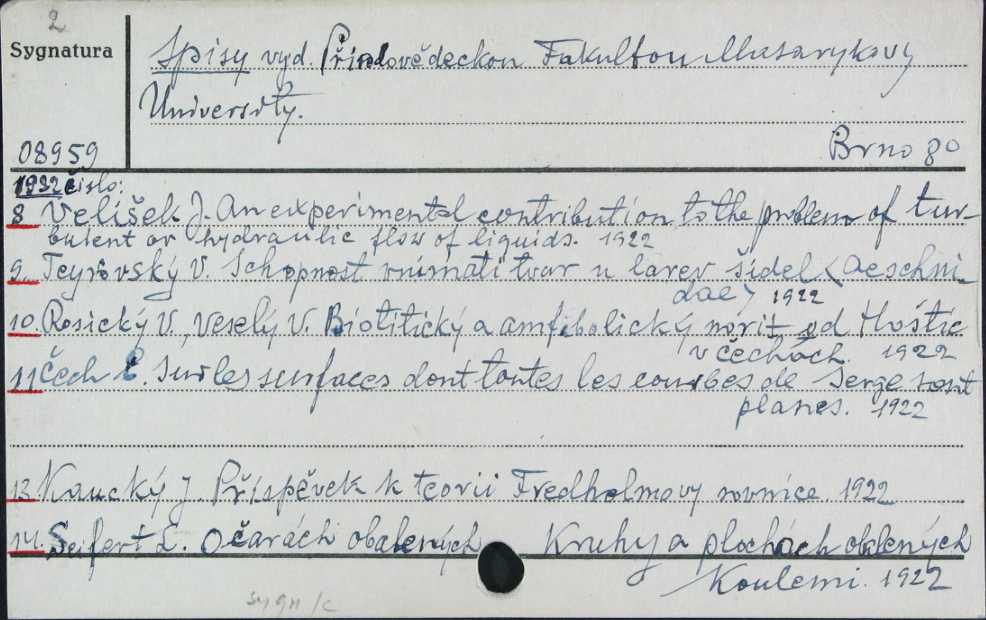 2
Sygnatura
Spisy vyd. Přírodovědeckou Fakultou Masarykovy
University.
08959
Brno 80
1922 číslo:
8 Velíšek J. An experimental contribution to the problem of tur-
bulent or hydraulic flow of liquids. 1922
9 Teyrovský V. Schopnost vnímati tvar u larev šídel (Aeschni-
dae) 1922
10. Rosický V, Veselý V. Biotitický a amfibolický norit od Hoštic
v Čechách. 1922
11 Čech E. Sur les surfaces dont toutes les courbes de Segre sont
planes. 1922
13 Kaucký J. Příspěvek k teorii Fredholmovy rovnice. 1922
14. Seifert L. O čarách obalených Kruhy a plochách obalených
Koulemi. 1922
sygn/c